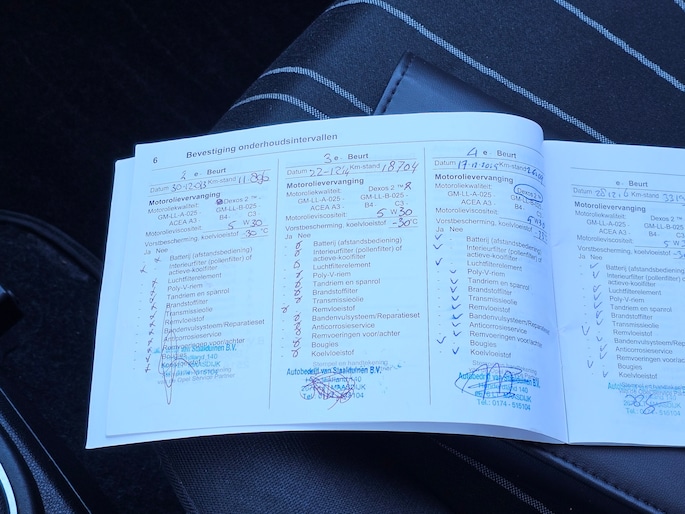 6 Bevestiging onderhoudsintervallen
2 e - Beurt
Datum 30-12-013 Km-stand 11.896
Motorolievervanging
Motoroliekwaliteit: Dexos 2 ™
GM-LL-A-025 - GM-LL-B-025
ACEA A3 - B4 - C3
Motorolieviscositeit: 5 W 30
Vorstbescherming, koelvloeistof -30°C
Ja Nee
Batterij (afstandsbediening)
Interieurfilter (pollenfilter) of
actieve-koolfilter
Luchtfilterelement
Poly-V-riem
Tandriem en spanrol
Brandstoffilter
Transmissieolie
Remvloeistof
Bandenvulsysteem/Reparatieset
Anticorrosieservice
Remvoeringen voor/achter
Bougies
3 e - Beurt
Datum 22-12-14 Km-stand 18704
Motorolievervanging
Motoroliekwaliteit: Dexos 2 ™
GM-LL-A-025 - GM-LL-B-025
ACEA A3 - B4 - C3
Motorolieviscositeit: 5 W 30
Vorstbescherming, koelvloeistof -30°C
Ja Nee
Batterij (afstandsbediening)
Interieurfilter (pollenfilter) of
actieve-koolfilter
Luchtfilterelement
Poly-V-riem
Tandriem en spanrol
Brandstoffilter
Transmissieolie
Remvloeistof
Bandenvulsysteem/Reparatieset
Anticorrosieservice
Remvoeringen voor/achter
Bougies
Koelvloeistof
Stempel en handtekening
Autobedrijf van Staalduinen B.V.
Tel. 0174 - 516104
4 e - Beurt
Datum 17-12-2015 Km-stand
Motorolievervanging
Motoroliekwaliteit: Dexos 2 ™
GM-LL-A-025 - GM-LL-B-025
ACEA A3 - B4 - C3
Motorolieviscositeit: 5 W
Vorstbescherming, koelvloeistof
Ja Nee
Batterij (afstandsbediening)
Interieurfilter (pollenfilter) of
actieve-koolfilter
Luchtfilterelement
Poly-V-riem
Tandriem en spanrol
Brandstoffilter
Transmissieolie
Remvloeistof
Bandenvulsysteem/Reparatieset
Anticorrosieservice
Remvoeringen voor/achter
Bougies
Koelvloeistof
Autobedrijf van Staalduinen B.V.
140
Tel.: 0174 - 516104
e - Beurt
Datum Km-stand
Motorolievervanging
Motoroliekwaliteit: Dexos 2
GM-LL-A-025 - GM-LL-B-025
ACEA A3 - B4 - C3
Motorolieviscositeit: 5 W
Vorstbescherming, koelvloeistof
Ja Nee
Batterij (afstandsbediening)
Interieurfilter (pollenfilter) of
actieve-koolfilter
Luchtfilterelement
Poly-V-riem
Tandriem en spanrol
Brandstoffilter
Transmissieolie
Remvloeistof
Bandenvulsysteem/Reparatieset
Anticorrosieservice
Remvoeringen voor/achter
Bougies
Koelvloeistof